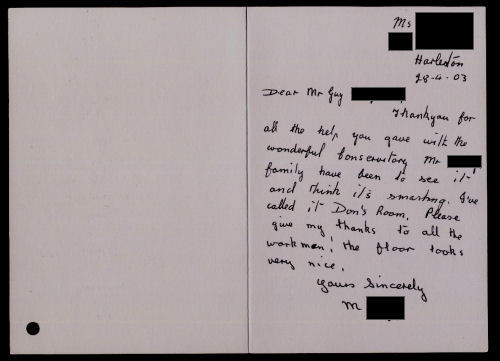 Ms
Harleston
28-4-03
Dear Mr Guy
Thankyou for
all the help you gave with the
wonderful Conservatory Mr
family have been to see it
and think it's smashing. I've
called it Don's Room. Please
give my thanks to all the
workmen, the floor looks
very nice.
Yours Sincerely
M